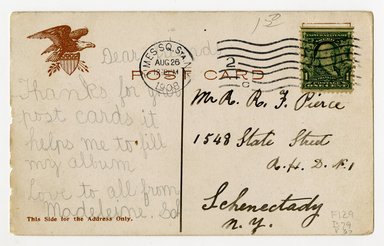 1 50
Dear
TIMES SQ. STA. N.Y.
AUG 26
1908
2
C
POST CARD
Thanks for
post cards it
helps me to fill
my album
Love to all from
Madeleine.
This Side for the Address Only.
Mr R. R. F. Pierce
1548 State Street
R. H. D. #1
Schenectady
N. Y.
F129
B79